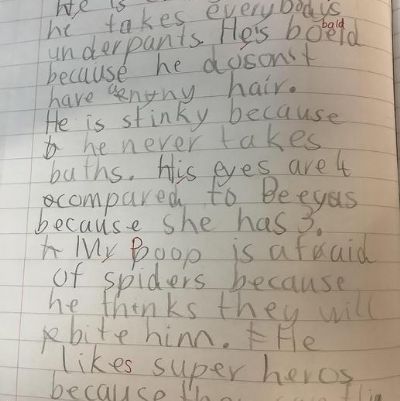 he takes everybodys
underpants. He's boeld bald
because he dosonst
have any hair.
He is stinky because
he never takes
baths. His eyes are 4
compared to Beeyas
because she has 3.
My Poop is afraid
of spiders because
he thinks they will
bite hinn. He
likes super heros
because